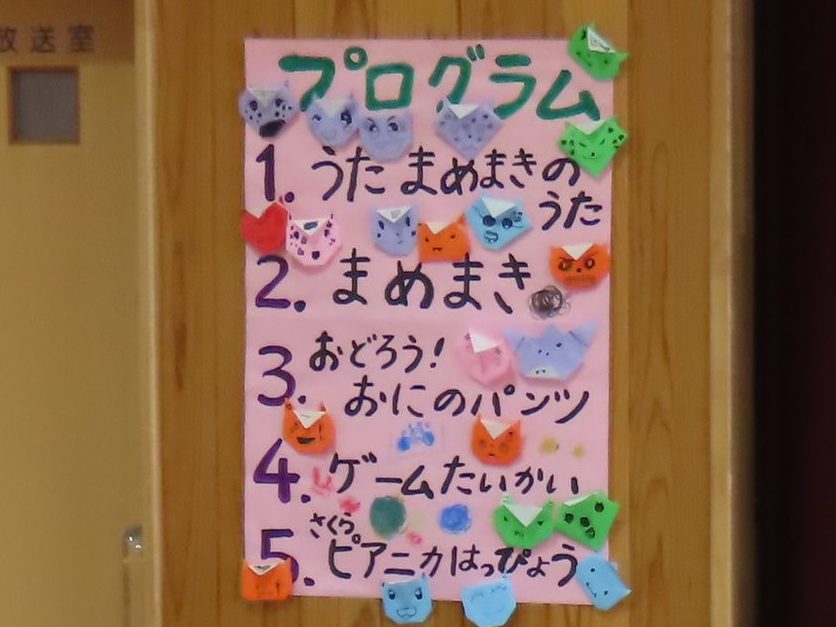 放送室
プログラム
1. うた まめまきの
うた
2. まめまき
3. おどろう!
おにのパンツ
4. ゲームたいかい
さくら
5. ピアニカはっぴょう